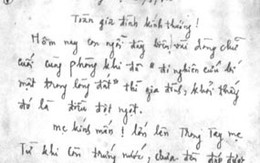 Toàn gia đình kính thương!
Hôm nay con ngồi đây biên vài dòng chữ
cuối cùng phòng khi đã "đi nghiên cứu bí
mật trong lòng đất" thì gia đình, khỏi thấy
đó là điều đột ngột.
Mẹ kính mến! Lớn lên trong tay mẹ
Từ khi còn trứng nước, chưa đền đáp được